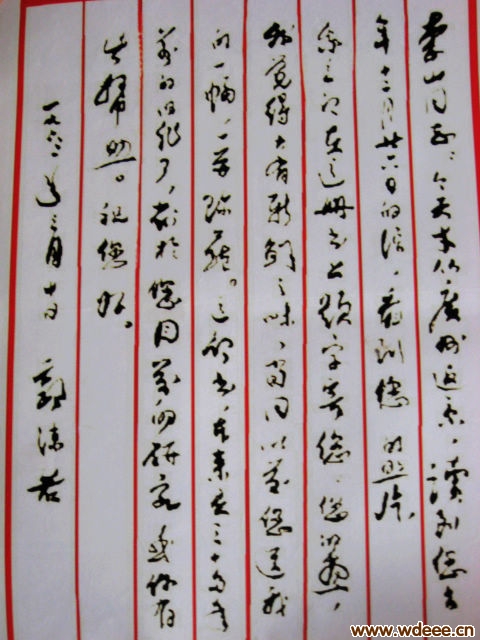 李山同志：今天才从广州返京，读到您去
年十二月廿六日的信，看到您的照片。
我已在这册书上题字寄您。您的画，
我觉得大有新鲜之味，当同以前您送我
的一幅，一并珍藏。这部书，本来是三十多年
前的旧作了，对于您国画的研究或许有
些帮助。祝您好。
一九六二年三月十日 郭沫若
www.wdeee.cn